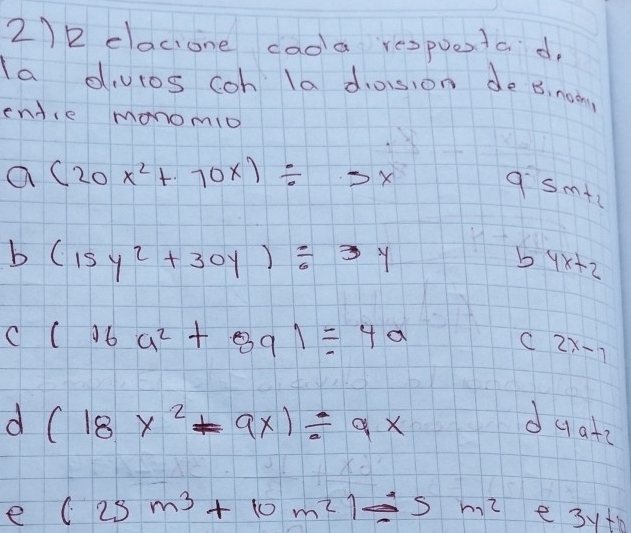 2) Relacione cada respuesta d.
la divios con la division de Binomi
entre monomio
a (20 x² + 10x) ÷ 5x a 5m+2
b (15y² + 30y) ÷ 3 y b 4x+2
c (16 a² + 8a) ÷ 4a c 2x-1
d (18 x² - 9x) ÷ 9x d 4a+2
e (25 m³ + 10 m²) ÷ 5 m² e 3y+10